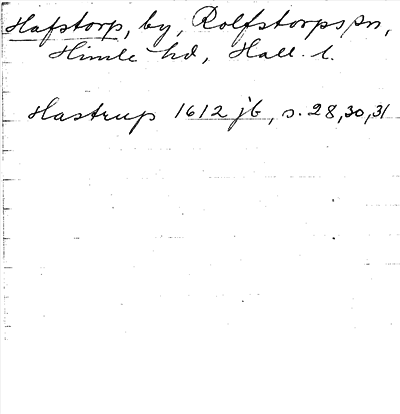 Hafstorp, by, Rolfstorps sn,
Himle hd, Hall. l.
Hastrup 1612 jb, s. 28, 30, 31